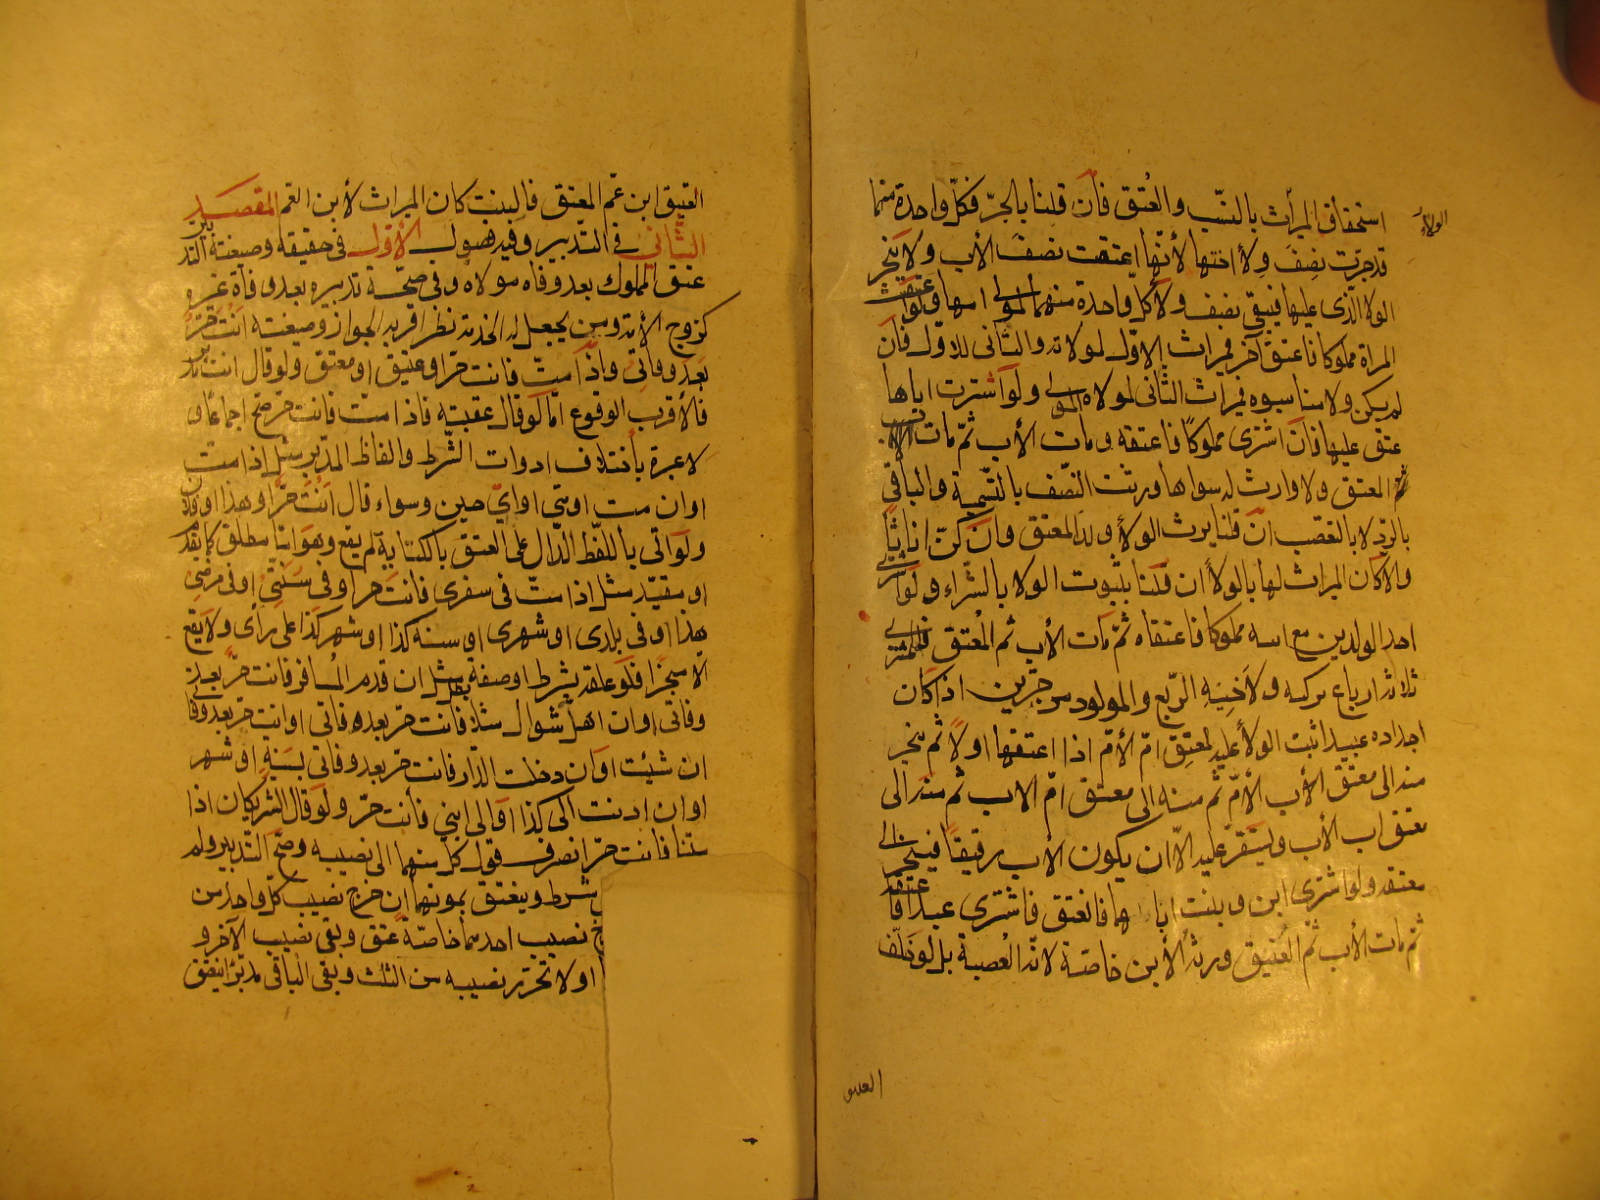 استحقاق الميراث بالنسب والعتق فان قلنا بالجرّ فكلّ واحدة منهما
الولاء
قد جرّت نصف ولاء اختها لأنّها اعتقت نصف الأب ولا ينجرّ
الولا الّذى عليها فيبقى نصف ولاء كل واحدة منهما لمولى امها ولو اعتقت
المراة مملوكا فاعتق آخر فميراث الاوّل لمولاته والثانى للاوّل فان
لم يكن ولا مناسبوه فميراث الثانى لمولاة المولى ولو اشترت اباها
عتق عليها فان اشترى مملوكا فاعتقه ومات الأب ثمّ مات
المعتق ولا وارث له سواها ورثت النّصف بالتّسمية والباقى
بالردّ لا بالتعصيب انّ قلنا يرث الولاء ولد المعتق وان كنّ اناثا
والا كان الميراث لها بالولاء ان قلنا بثبوت الولا بالشراء ولو اشترى
احد الولدين مع ابيه مملوكا فاعتقاه ثمّ مات الأب ثم المعتق فللمشترى
ثلاثة ارباع تركته ولاخيه الرّبع والمولود من حرّين اذا كان
اجداده عبيدا ثبت الولاء عليه لمعتق امّ الأمّ اذا اعتقها اولاً ثم ينجر
منه الى معتق الأب الأمّ ثم منه الى معتق امّ الاب ثم منه الى
معتق اب الأب ويستقرّ عليه الاّ ان يكون الأب رقيقاً فينجرّ الى
معتقه ولو اشترى ابن وبنت اباهما فانعتق فاشترى عبدا فاعتقه
ثم مات الأب ثم العتيق ورثه الأبن خاصّة لانّه العصبة بل لو خلّف
العتيق
العتيق ابن عمّ المعتق فالبنت كان الميراث لأبن العمّ المقصد
الثّانى فى التّدبير وفيه فصول الأوّل فى حقيقته وصيغته التدبير
عتق المملوك بعد وفاة مولاه وفى صحّة تدبيره بعد وفاة غيره
كزوج الأمة ومن يجعل له الخدمة نظر اقربه الجواز وصيغته انت حرّ
بعد وفاتى واذا متّ فانت حرّ او عتيق او معتق ولو قال انت مدبر
فالأقرب الوقوع امّا لو قال عقيبه فاذا متّ فانت حرّ صحّ اجماعا و
لا عبرة باختلاف ادوات الشّرط والفاظ المدبّر مثل اذا متّ
او ان مت او متى او اىّ حين وسواء قال انت حرّ او هذا او فلان
ولو اتى باللفظ الدّال على العتق بالكتابة لم يقع وهو امّا مطلق كما تقدم
او مقيّد مثل اذا متّ فى سفرى فانت حرّ او فى سنتى او فى مرضى
هذا او فى بلدى او شهرى او سنة كذا او شهر كذا على راى ولا يقع
الا منجزا فلو علقه بشرط او صفة بطل مثل ان قدم المسافر فانت حرّ بعد
وفاتى او ان اهلّ شوال مثلا فانت حرّ بعد وفاتى او انت حرّ بعد وفاتى
ان شئت او ان دخلت الدّار فانت حرّ بعد وفاتى بسنة او شهر
او ان ادّيت الىّ كذا او الى ابنى فأنت حرّ ولو قال الشريكان اذا
متنا فانت حرّ انصرف قول كل منهما الى نصيبه وصحّ التّدبير ولم
شرط وينعتق بموتهما ان خرج نصيب كلّ واحد من
نصيب احدهما خاصّة عتق وبقى نصيب الآخر و
او لا تحرّر نصيبه من الثلث وبقى الباقى مدبّرا ينعتق